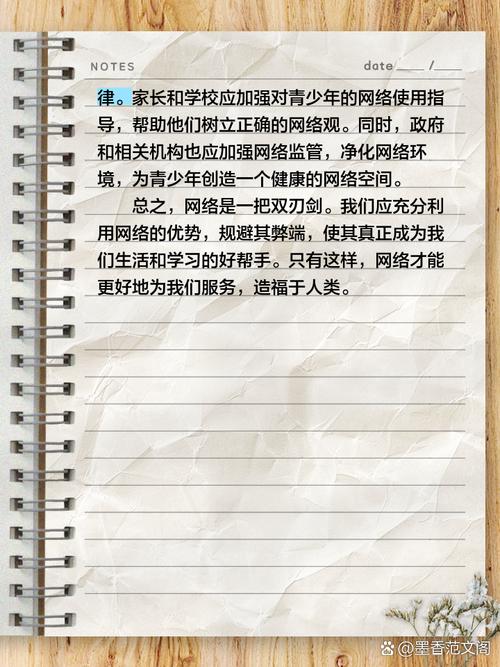 NOTES
date ____ /____
律。家长和学校应加强对青少年的网络使用指
导，帮助他们树立正确的网络观。同时，政府
和相关机构也应加强网络监管，净化网络环
境，为青少年创造一个健康的网络空间。
总之，网络是一把双刃剑。我们应充分利
用网络的优势，规避其弊端，使其真正成为我
们生活和学习的好帮手。只有这样，网络才能
更好地为我们服务，造福于人类。
@墨香范文阁